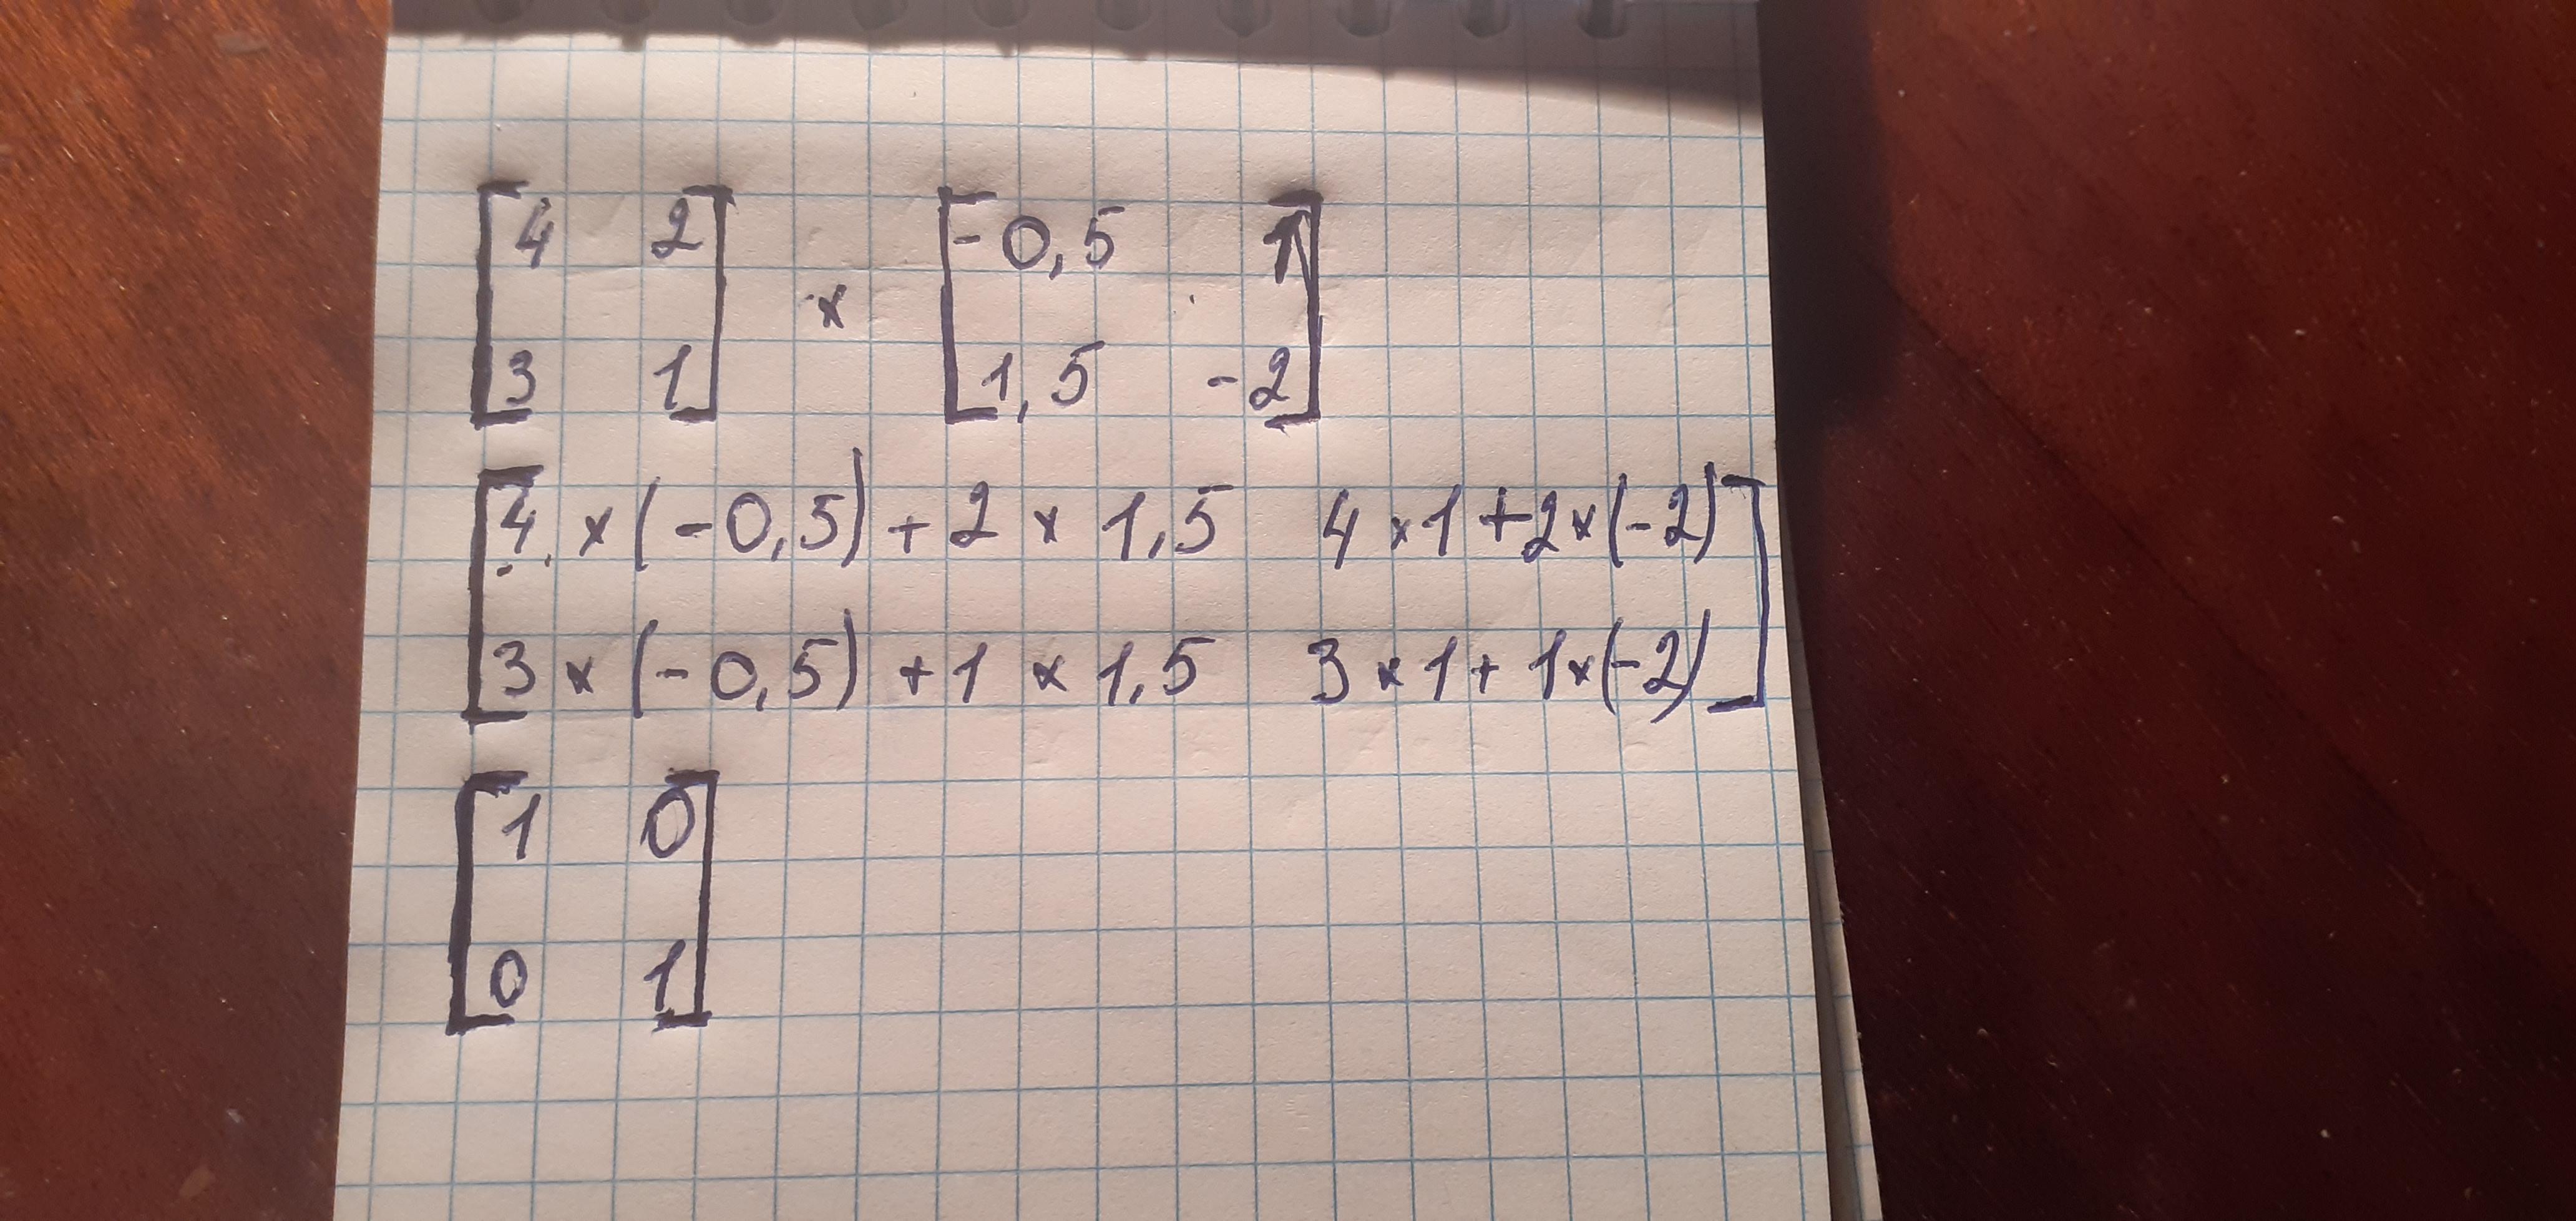 4 2 × -0,5 1
3 1 1,5 -2
4 × (-0,5) + 2 × 1,5 4 × 1 + 2 × (-2)
3 × (-0,5) + 1 × 1,5 3 × 1 + 1 × (-2)
1 0
0 1